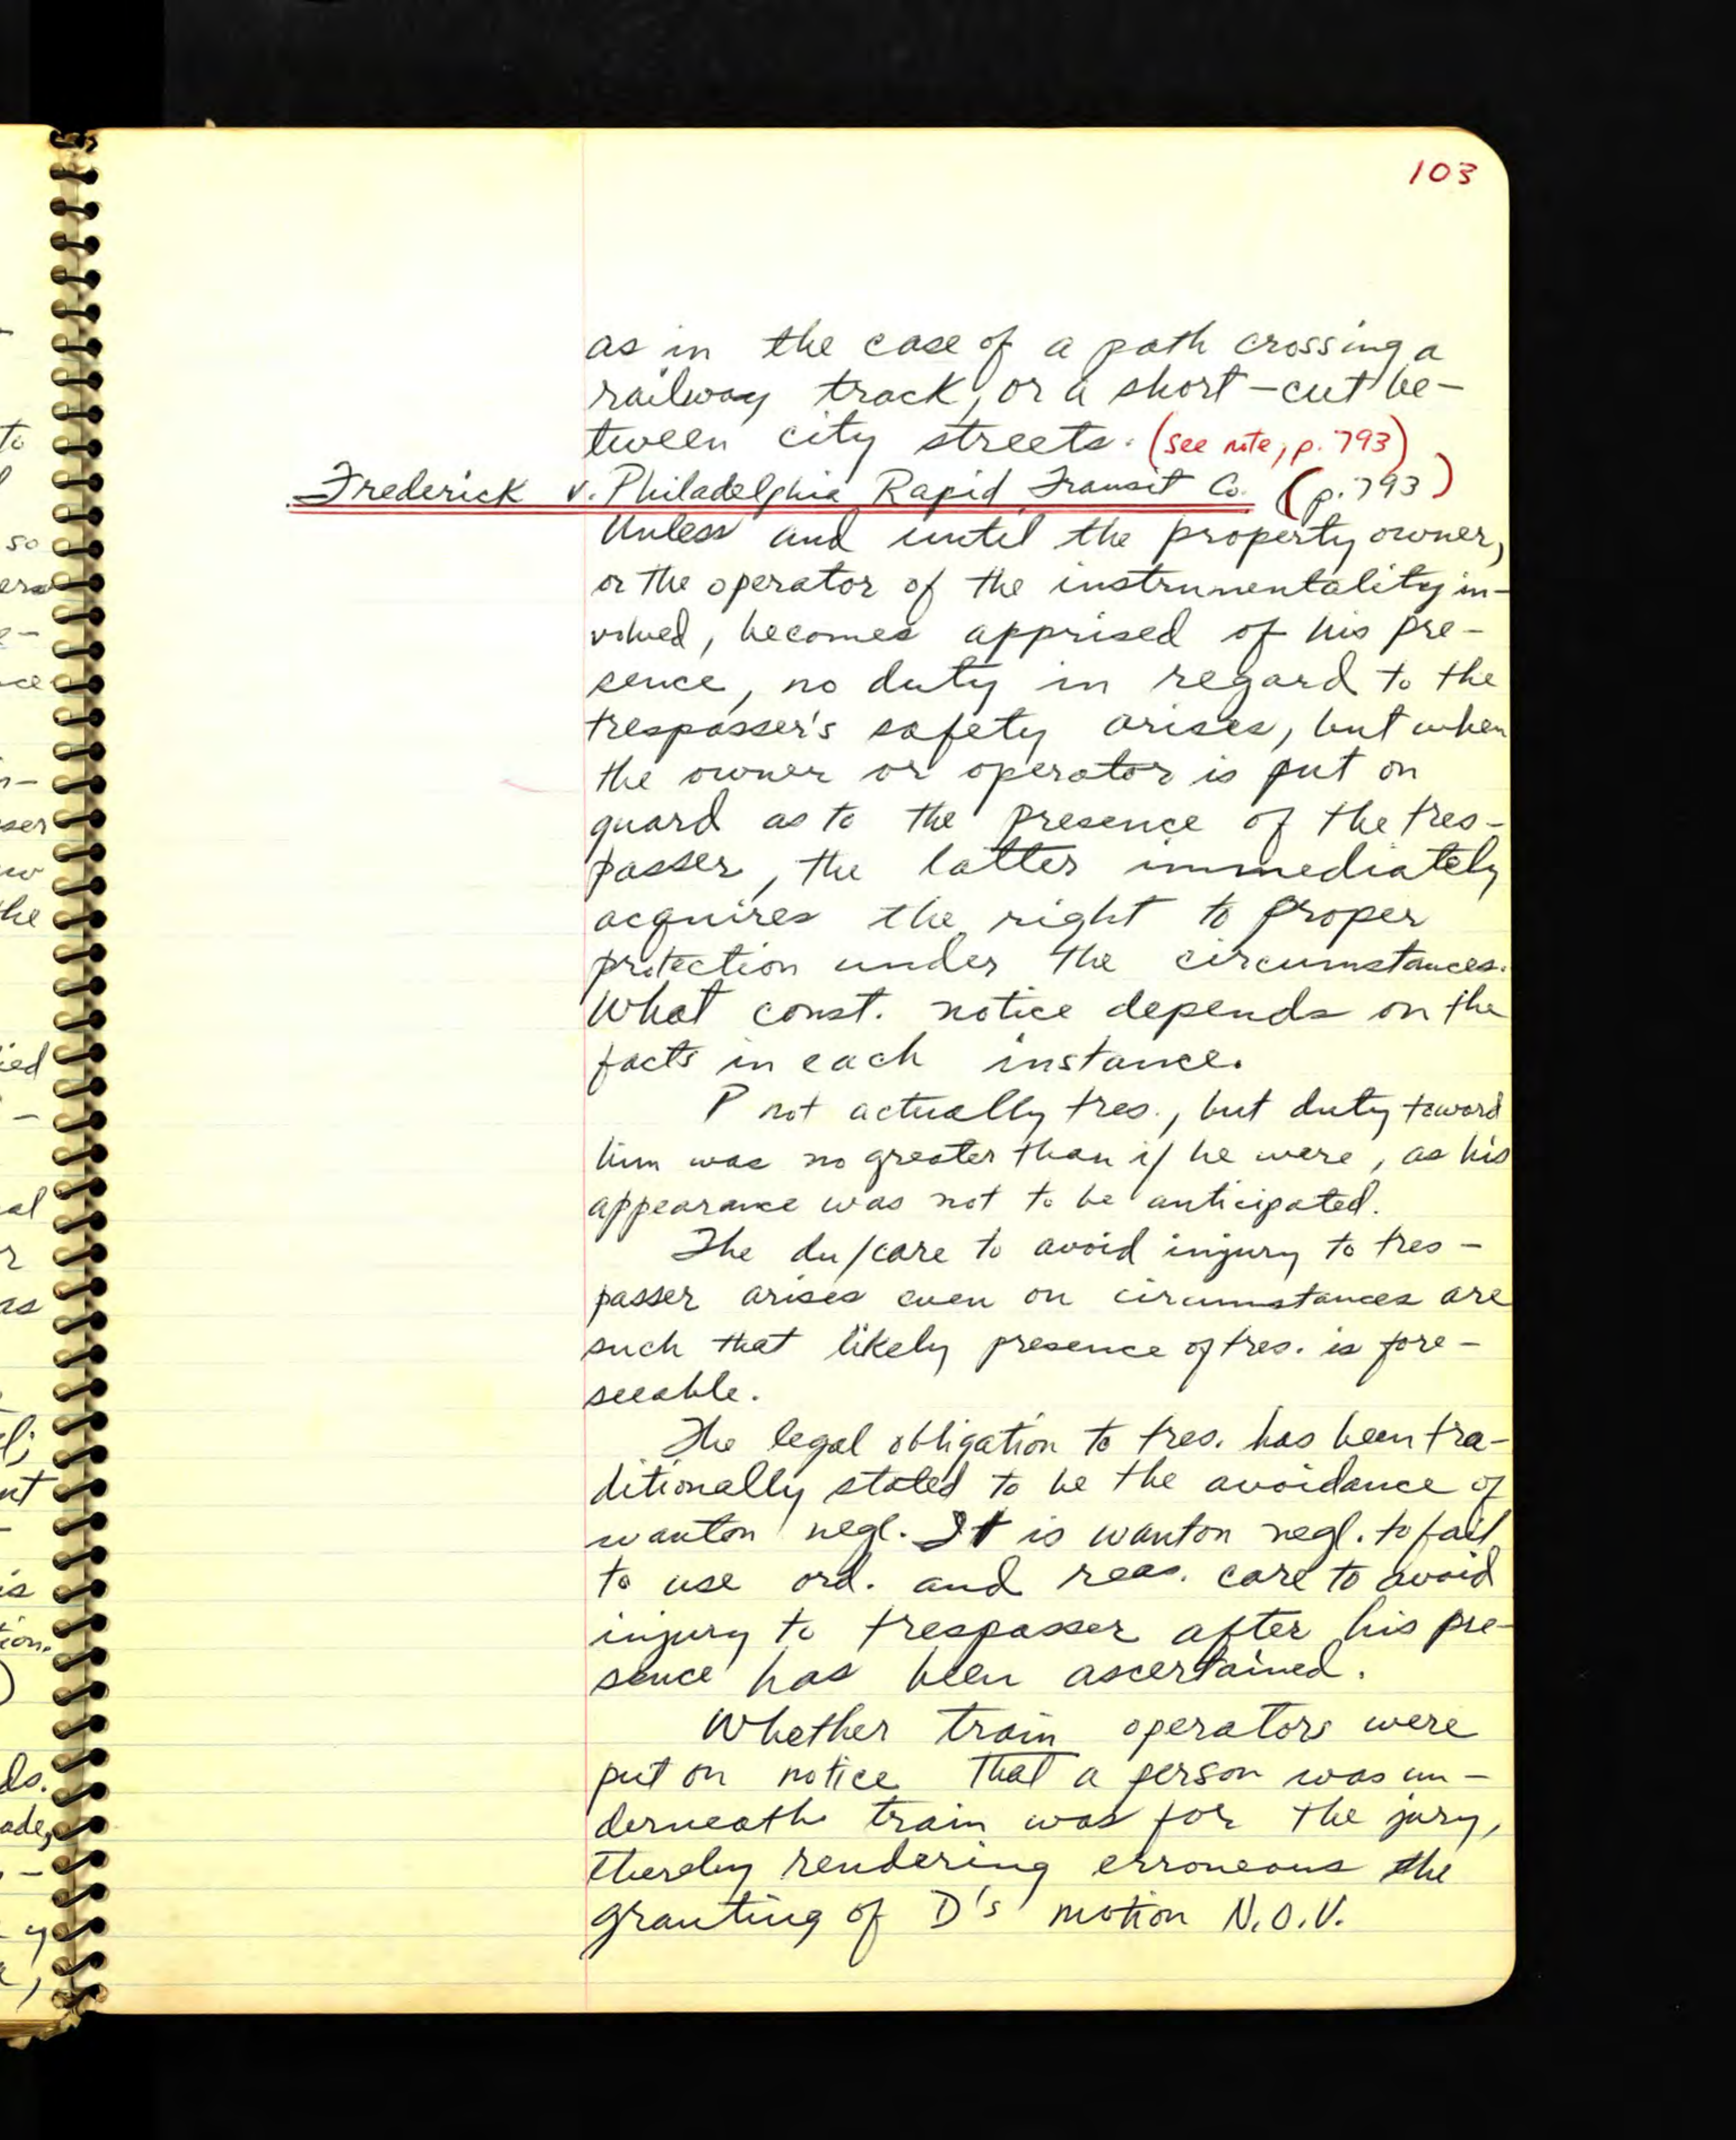 103
as in the case of a path crossing a
railway track, or a short-cut be-
tween city streets. (see note, p. 793)
Frederick v. Philadelphia Rapid Transit Co. (p. 793)
Unless and until the property owner,
or the operator of the instrumentality in-
volved, becomes apprised of his pre-
sence, no duty in regard to the
trespasser's safety arises, but when
the owner or operator is put on
guard as to the presence of the tres-
passer, the latter immediately
acquires the right to proper
protection under the circumstances.
What const. notice depends on the
facts in each instance.
P not actually tres., but duty toward
him was no greater than if he were, as his
appearance was not to be anticipated.
The du/care to avoid injury to tres-
passer arises even on circumstances are
such that likely presence of tres. is fore-
seeable.
The legal obligation to tres. has been tra-
ditionally stated to be the avoidance of
wanton negl. It is wanton negl. to fail
to use ord. and reas. care to avoid
injury to trespasser after his pre-
sence has been ascertained.
Whether train operators were
put on notice that a person was un-
derneath train was for the jury,
thereby rendering erroneous the
granting of D's motion N.O.V.